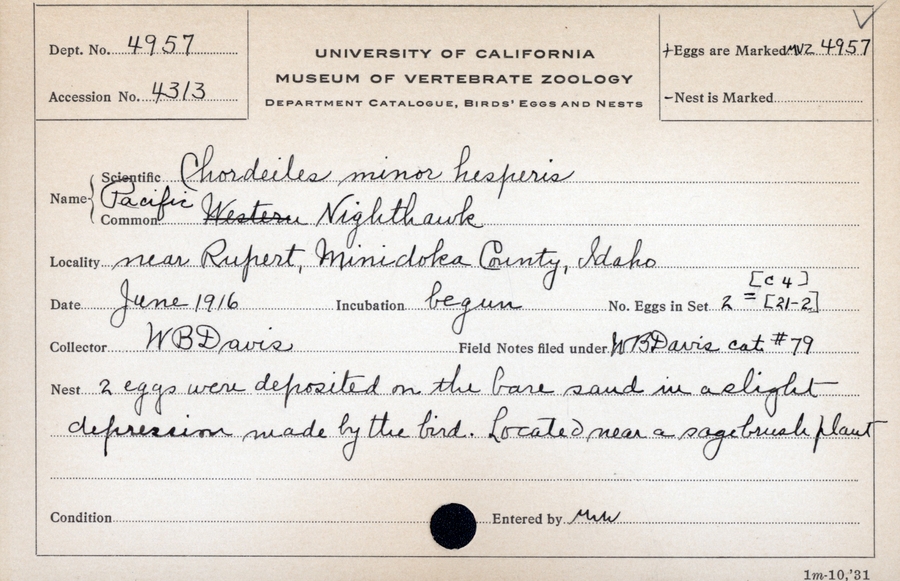 Dept. No. 4957
Accession No. 4313
UNIVERSITY OF CALIFORNIA
MUSEUM OF VERTEBRATE ZOOLOGY
DEPARTMENT CATALOGUE, BIRDS' EGGS AND NESTS
+Eggs are Marked MVZ 4957
-Nest is Marked
Name { Scientific Chordeiles minor hesperis
Pacific
Common Western Nighthawk
Locality near Rupert, Minidoka County, Idaho
[C 4]
Date June 1916 Incubation begun No. Eggs in Set 2 = [21-2]
Collector WBDavis Field Notes filed under WBDavis cat #79
Nest 2 eggs were deposited on the bare sand in a slight
depression made by the bird. Located near a sagebrush plant
Condition Entered by
1m-10,'31